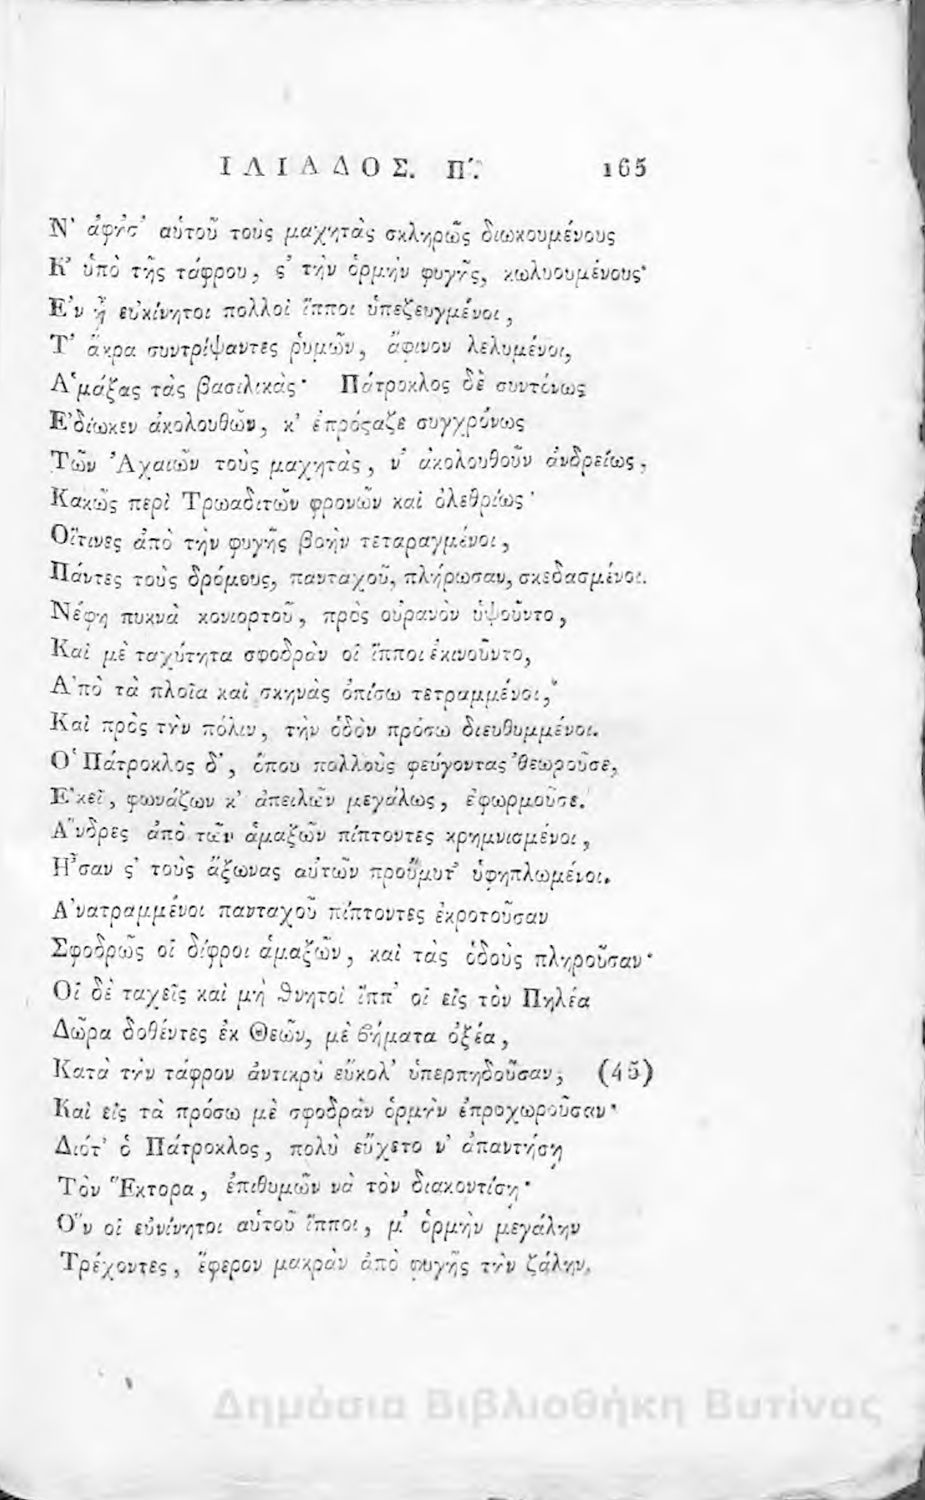 ΙΛΙΑΔΟΣ. Π΄. 165
Ν' ἀφίσ' αὑτοῦ τοὺς μαχητὰς σκληρῶς διωκουμένους
Κ' ὑπὸ τῆς τάφρου, ς' τὴν ὁρμὴν φυγῆς, κωλυουμένους·
Ἐν ᾗ εὐκίνητοι πολλοὶ ἵπποι ὑπεζευγμένοι,
Τ' ἄκρα συντρίψαντες ῥυμῶν, ἄφινον λελυμένοι,
Ἁμάξας τὰς βασιλικάς· Πάτροκλος δὲ συντόνως
Ἐδίωκεν ἀκολουθῶν, κ' ἐπρόςαζε συγχρόνως
Τῶν Ἀχαιῶν τοὺς μαχητὰς, ν' ἀκολουθοῦν ἀνδρείως,
Κακῶς περὶ Τρωαδιτῶν φρονῶν καὶ ὀλεθρίως·
Οἵτινες ἀπὸ τὴν φυγῆς βοὴν τεταραγμένοι,
Πάντες τοὺς δρόμους, πανταχοῦ, πλήρωσαν, σκεδασμένοι.
Νέφη πυκνὰ κονιορτοῦ, πρὸς οὐρανὸν ὑψοῦντο,
Καὶ μὲ ταχύτητα σφοδρὰν οἱ ἵπποι ἐκινοῦντο,
Ἀπὸ τὰ πλοῖα καὶ σκηνὰς ὀπίσω τετραμμένοι,
Καὶ πρὸς τὴν πόλιν, τὴν ὁδὸν πρόσω διευθυμμένοι.
Ὁ Πάτροκλος δ', ὅπου πολλοὺς φεύγοντας θεωροῦσε,
Ἐκεῖ, φωνάζων κ' ἀπειλῶν μεγάλως, ἐφωρμοῦσε.
Ἄνδρες ἀπὸ τῶν ἁμαξῶν πίπτοντες κρημνισμένοι,
Ἦσαν ς' τοὺς ἄξωνας αὐτῶν προὔμυτ' ὑφηπλωμένοι.
Ἀνατραμμένοι πανταχοῦ πίπτοντες ἐκροτοῦσαν
Σφοδρῶς οἱ δίφροι ἁμαξῶν, καὶ τὰς ὁδοὺς πληροῦσαν·
Οἱ δὲ ταχεῖς καὶ μὴ ϑνητοὶ ἵππ' οἱ εἰς τὸν Πηλέα
Δῶρα δοθέντες ἐκ Θεῶν, μὲ βήματα ὀξέα,
Κατὰ τὴν τάφρον ἀντικρὺ εὔκολ' ὑπερπηδοῦσαν, (45)
Καὶ εἰς τὰ πρόσω μὲ σφοδρὰν ὁρμὴν ἐπροχωροῦσαν·
Διότ' ὁ Πάτροκλος, πολὺ εὔχετο ν' ἀπαντήσῃ
Τὸν Ἕκτορα, ἐπιθυμῶν νὰ τὸν διακοντίσῃ·
Ὃν οἱ εὐνίνητοι αὑτοῦ ἵπποι, μ' ὁρμὴν μεγάλην
Τρέχοντες, ἔφερον μακρὰν ἀπὸ φυγῆς τὴν ζάλην,
Δημόσια Βιβλιοθήκη Βυτίνας